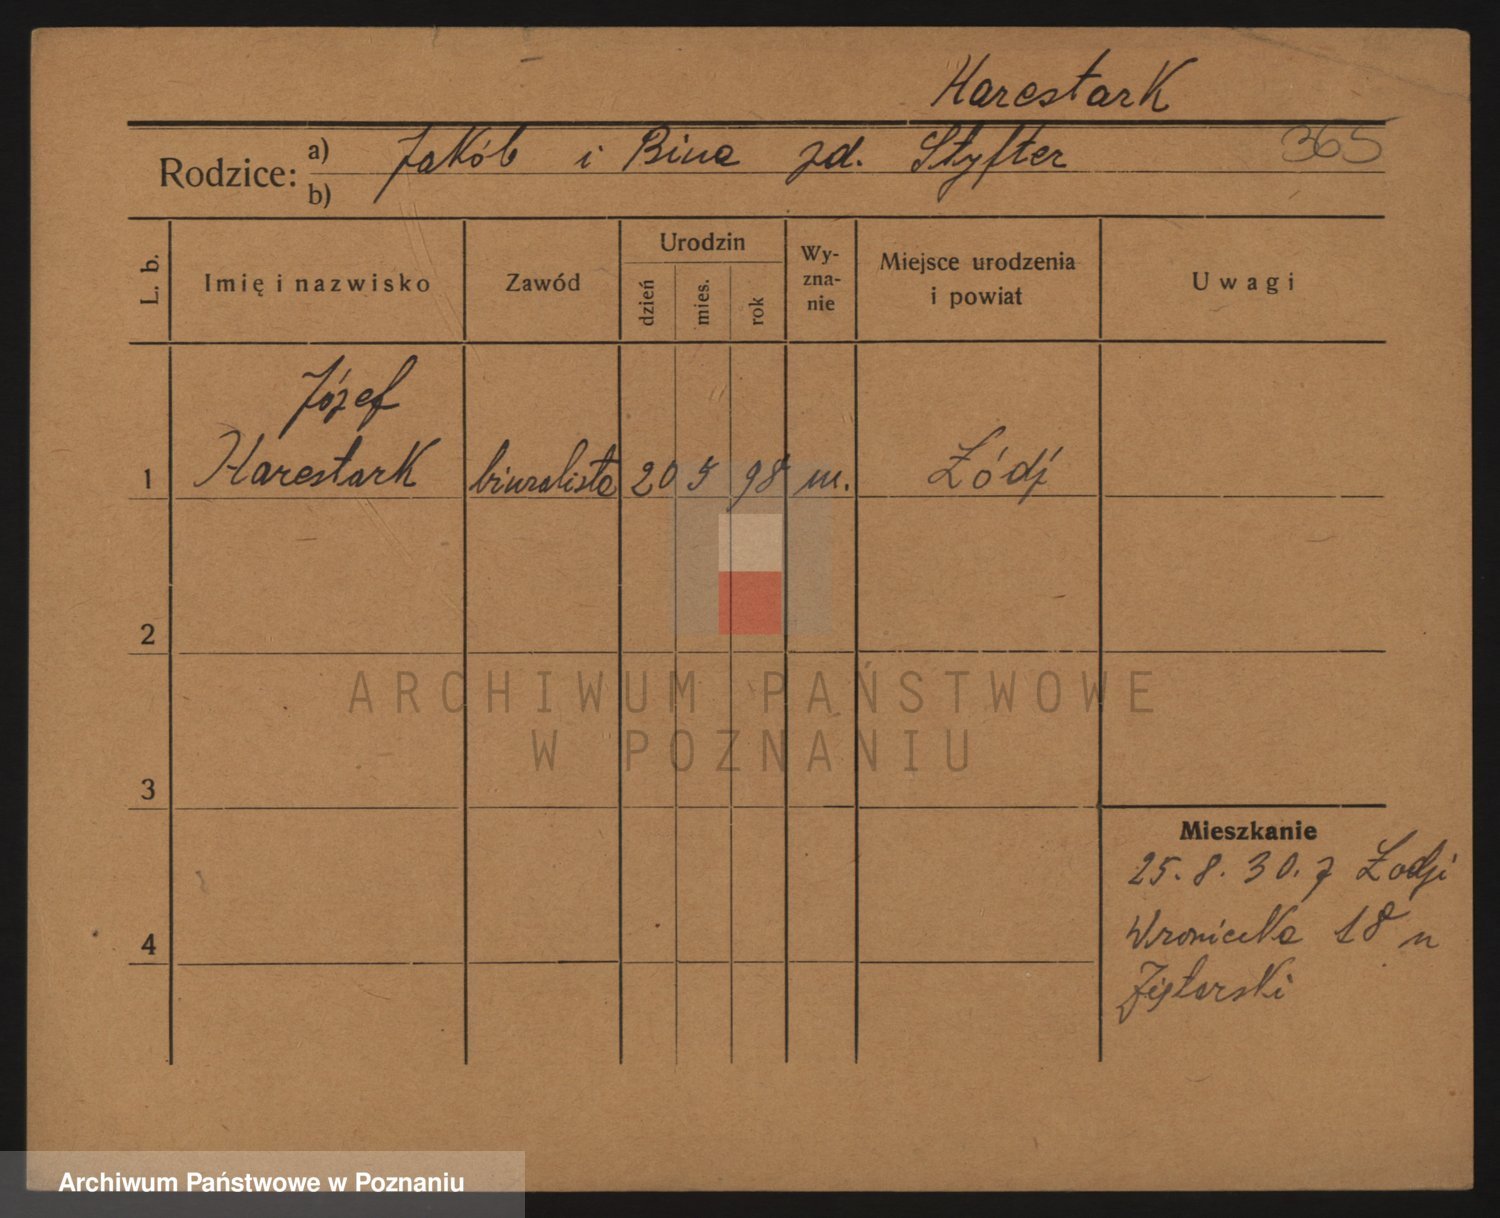 Harestark
365
Rodzice: a) Jakób i Bina zd. Styfter
b)
L. b. Imię i nazwisko Zawód Urodzin dzień mies. rok Wy-zna-nie Miejsce urodzenia i powiat Uwagi
Józef
1 Harestark biuralista 20 5 98 m. Łódź
2
ARCHIWUM PAŃSTWOWE
W POZNANIU
3
Mieszkanie
25. 8. 30. z Łodzi
4 Wroniecka 18 u
Archiwum Państwowe w Poznaniu